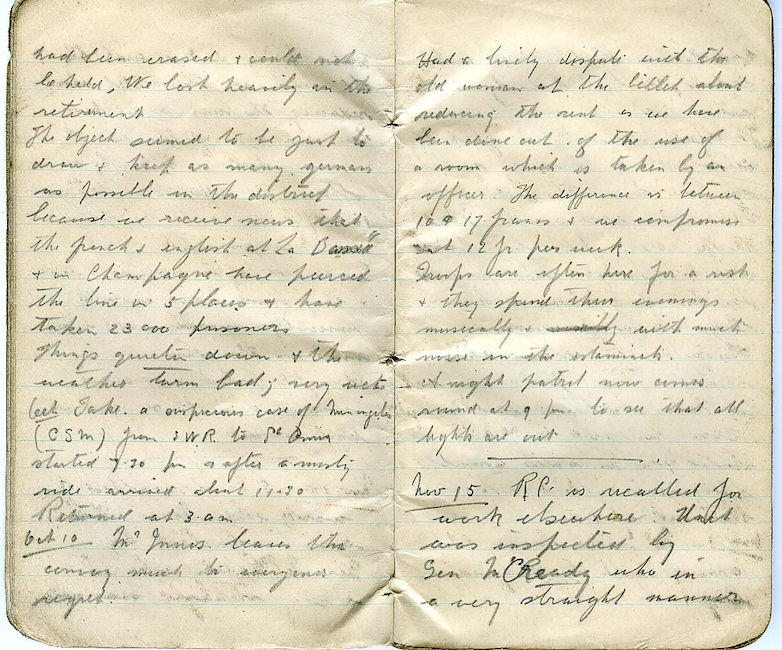 had been erased & could not
be held, We lost heavily in the
retirement
The object seemed to be just to
draw & keep as many germans
as possible in the district
because we receive news that
the french & english at La Bassée
& in Champagne have pierced
the line in 5 places & have
taken 23 000 prisoners
Things quieten down & the
weather turn bad; very wet
Oct Take a suspicious case of Meningitis
(CSM) from SWR. to St Omer
started 7.30 pm & after a misty
ride arrived about 11-30
Returned at 3 am
Oct 10 Mr Innes leaves the
convoy much to everyones
regret.
Had a lively dispute with the
old woman at the billet about
reducing the rent as we have
been done out of the use of
a room which is taken by an
officer. The difference is between
10 & 17 francs & we compromise
at 12 fr per week.
Troops are often here for a rest
& they spend their evenings
musically & with much
noise in the estaminets.
A night patrol now comes
round at 9 pm to see that all
lights are out
Nov 15. RP. is recalled for
work elsewhere. Unit
was inspected by
Gen McCready who in
a very straight manner